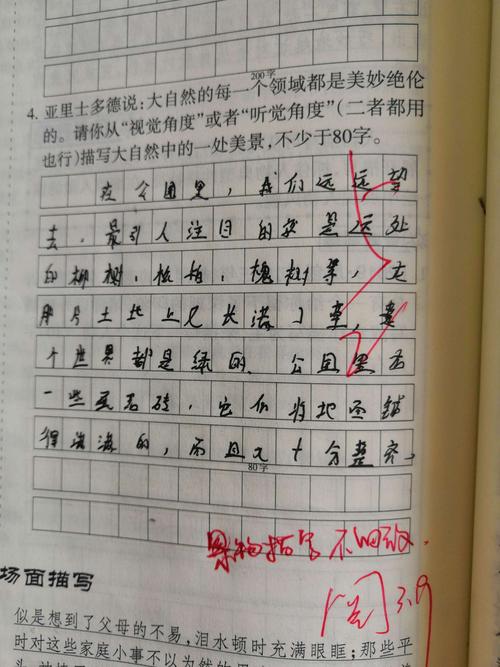 200字
4. 亚里士多德说:大自然的每一个领域都是美妙绝伦
的。请你从“视觉角度”或者“听觉角度”(二者都用
也行)描写大自然中的一处美景,不少于80字。
在公园里,我们远远望
去,最引人注目的要是远处
的柳树,松柏,槐树等,在
那片土地上又长满了草,整
个世界都是绿的、公园里面
一些瓷石砖,它们将地面铺
得满满的,而且又十分整齐。
80字
景物描写不细致.
阅 3.9
场面描写
似是想到了父母的不易,泪水顿时充满眼眶;那些平
时对这些家庭小事不以为然的